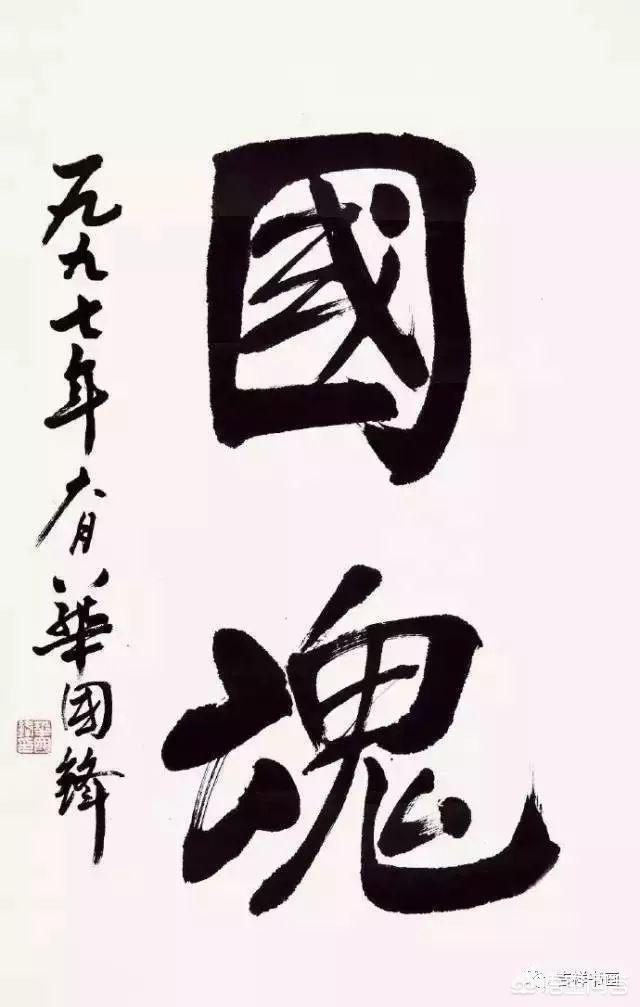 國魂
一九九七年六月華國鋒
吉祥书画